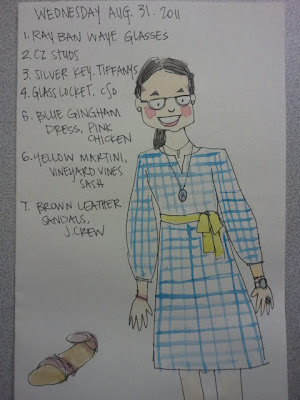 WEDNESDAY AUG. 31. 2011
1. RAY BAN WAYF. GLASSES
2. CZ STUDS
3. SILVER KEY. TIFFANYS
4. GLASS LOCKET. C/O
5. BLUE GINGHAM
DRESS, PINK
CHICKEN
6. YELLOW MARTINI,
VINEYARD VINES
SASH
7. BROWN LEATHER
SANDALS,
J. CREW